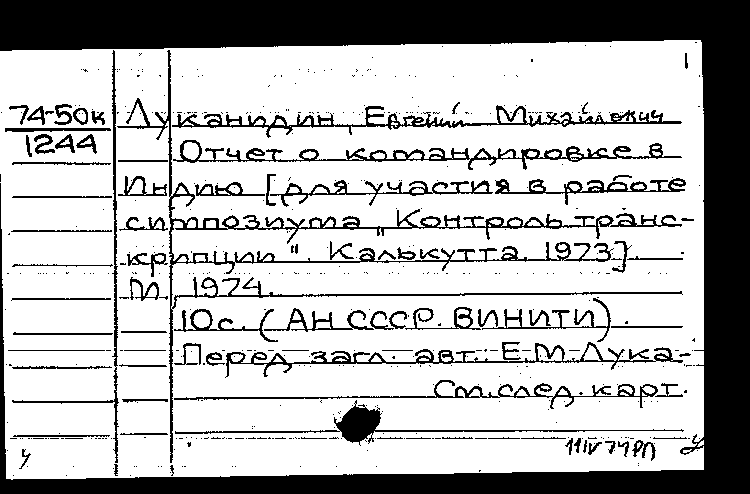 1
74-50к
1244
Луканидин, Евгений Михайлович
Отчет о командировке в
Индию [для участия в работе
симпозиума „Контроль транс-
крипции". Калькутта. 1973].
М., 1974.
10с. (АН СССР. ВИНИТИ).
Перед загл. авт.: Е.М.Лука-
См.след.карт.
11IV74